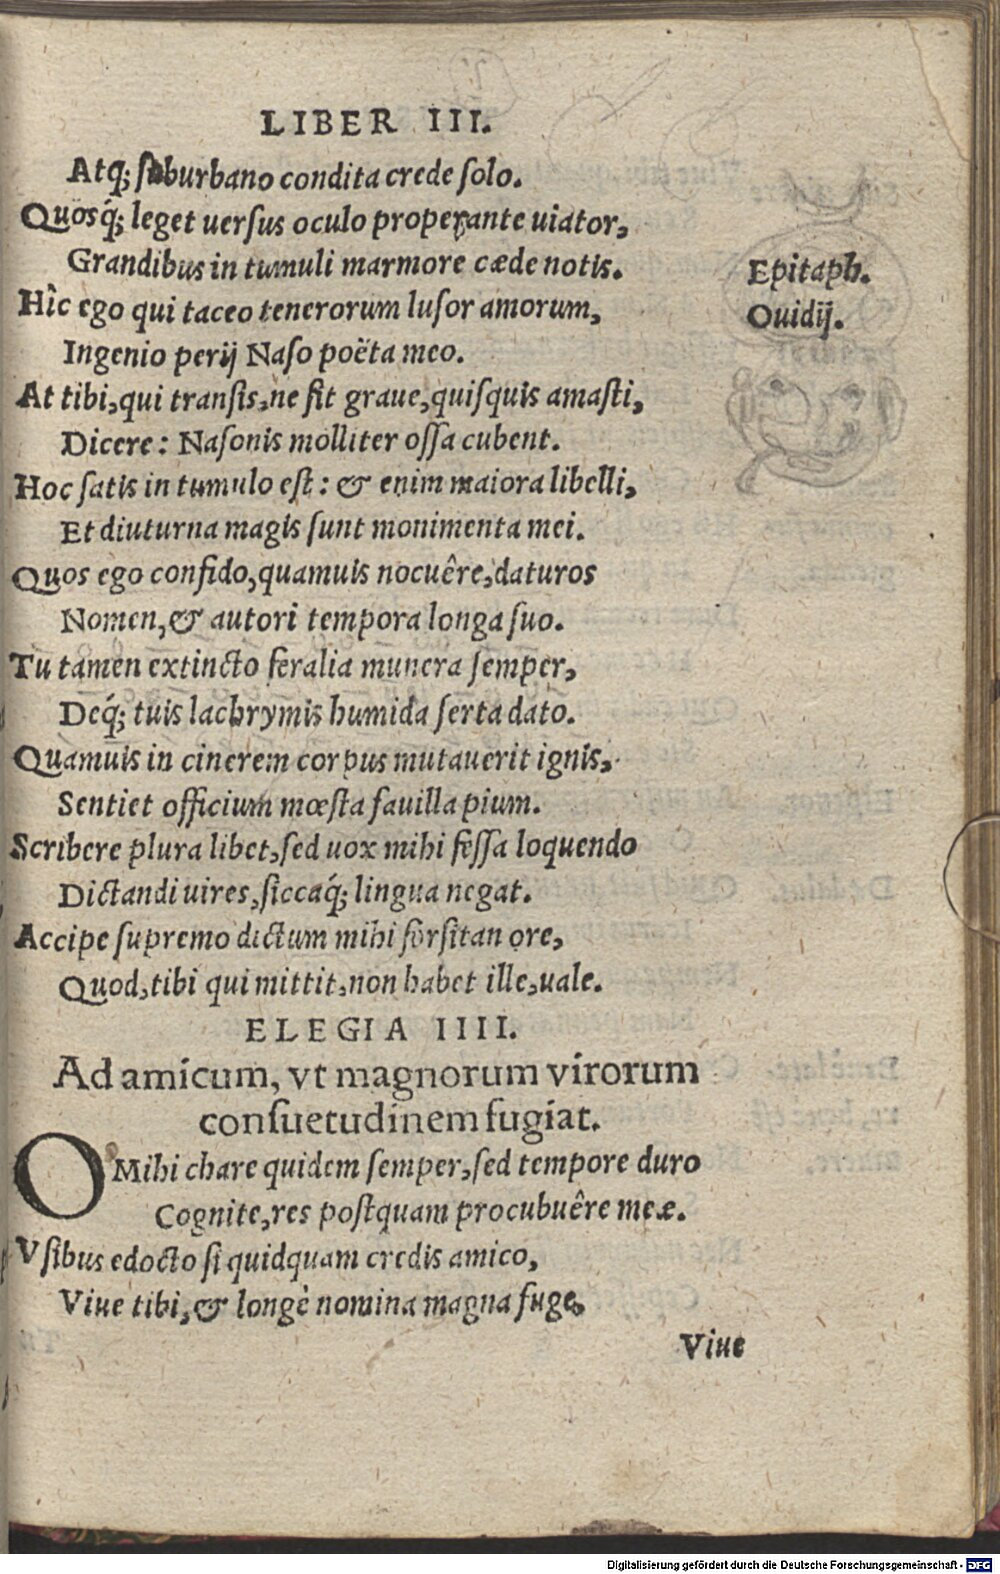 LIBER III.
Atq́; suburbano condita crede solo.
Quosq́; leget uersus oculo properante uiator,
Grandibus in tumuli marmore cæde notis.
Epitaph.
Ouidij.
Hîc ego qui taceo tenerorum lusor amorum,
Ingenio perij Naso poëta meo.
At tibi, qui transis, ne sit graue, quisquis amasti,
Dicere: Nasonis molliter ossa cubent.
Hoc satis in tumulo est: & enim maiora libelli,
Et diuturna magis sunt monimenta mei.
Quos ego confido, quamuis nocuêre, daturos
Nomen, & autori tempora longa suo.
Tu tamen extincto feralia munera semper,
Deq́; tuis lachrymis humida serta dato.
Quamuis in cinerem corpus mutauerit ignis,
Sentiet officium mœsta fauilla pium.
Scribere plura libet, sed uox mihi fessa loquendo
Dictandi uires, siccaq́; lingua negat.
Accipe supremo dictum mihi forsitan ore,
Quod, tibi qui mittit, non habet ille, uale.
ELEGIA IIII.
Ad amicum, vt magnorum virorum
consuetudinem fugiat.
O Mihi chare quidem semper, sed tempore duro
Cognite, res postquam procubuêre meæ.
Vsibus edocto si quidquam credis amico,
Viue tibi, & longè nomina magna fuge,
Viue
Digitalisierung gefördert durch die Deutsche Forschungsgemeinschaft - DFG